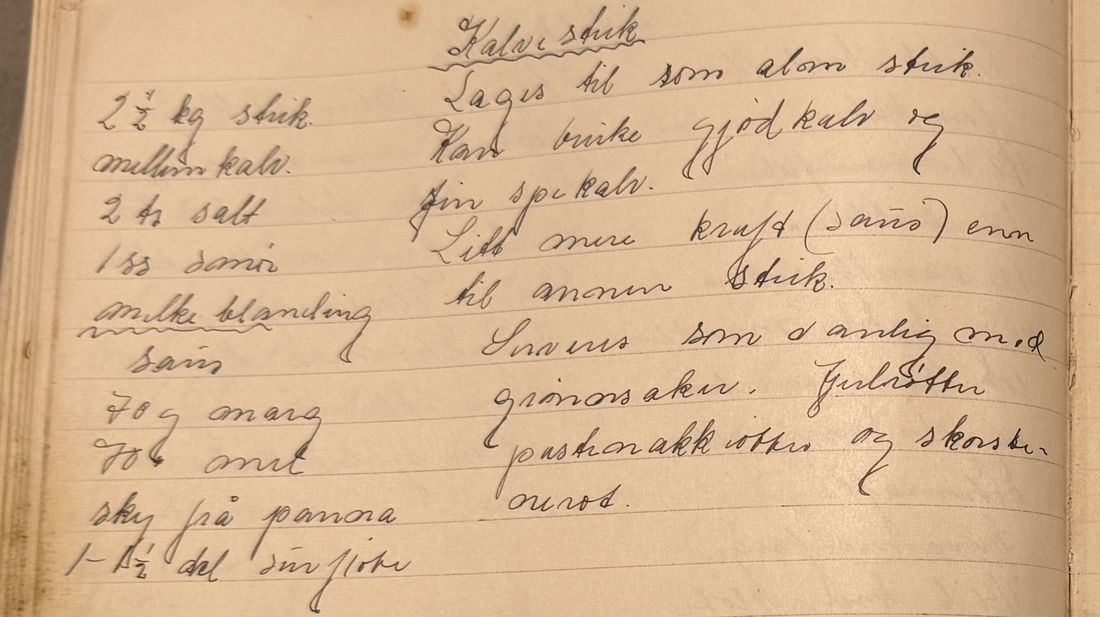 Kalvesteik
2 1/2 kg steik.
mellomkalv.
2 ts salt
1 ss smør
melkeblanding
saus
70 g marg
70 " mel
sky frå panna
1-1 1/2 del surfløte
Lages til som alom steik.
Kan bruke gjødkalv og
fin spekalv.
Litt mere kraft (saus) enn
til annen steik.
Serveres som vanlig med
grønnsaker. Gulrøtter
pastinakkrøtter og skorsone-
rerot.